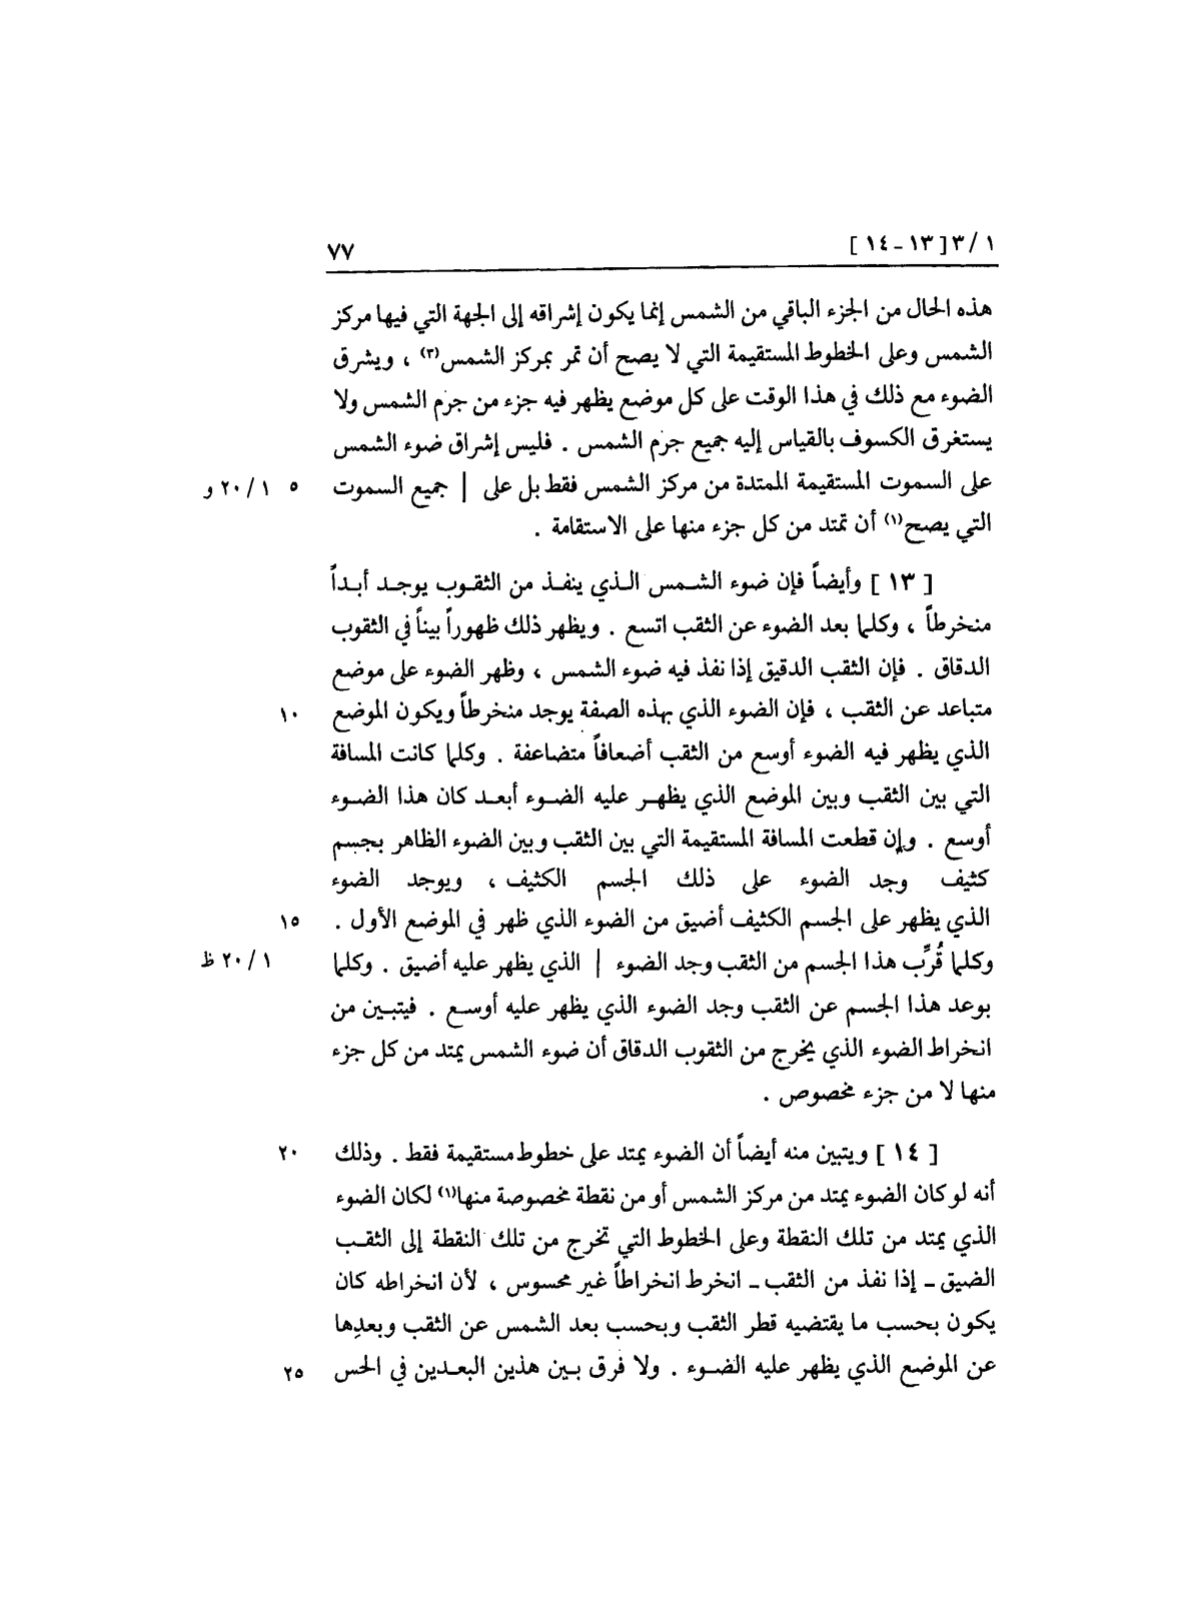 ١ / ٣ [ ١٣ ـ ١٤ ] ٧٧
هذه الحال من الجزء الباقي من الشمس إنما يكون إشراقه إلى الجهة التي فيها مركز
الشمس وعلى الخطوط المستقيمة التي لا يصح أن تمر بمركز الشمس(٣) ، ويشرق
الضوء مع ذلك في هذا الوقت على كل موضع يظهر فيه جزء من جرم الشمس ولا
يستغرق الكسوف بالقياس إليه جميع جرم الشمس . فليس إشراق ضوء الشمس
على السموت المستقيمة الممتدة من مركز الشمس فقط بل على | جميع السموت ٥ ١ / ٢٠ و
التي يصح(١) أن تمتد من كل جزء منها على الاستقامة .
[ ١٣ ] وأيضاً فإن ضوء الشمس الذي ينفذ من الثقوب يوجد أبداً
منخرطاً ، وكلما بعد الضوء عن الثقب اتسع . ويظهر ذلك ظهوراً بيناً في الثقوب
الدقاق . فإن الثقب الدقيق إذا نفذ فيه ضوء الشمس ، وظهر الضوء على موضع
متباعد عن الثقب ، فإن الضوء الذي بهذه الصفة يوجد منخرطاً ويكون الموضع ١٠
الذي يظهر فيه الضوء أوسع من الثقب أضعافاً متضاعفة . وكلما كانت المسافة
التي بين الثقب وبين الموضع الذي يظهر عليه الضوء أبعد كان هذا الضوء
أوسع . وإن قطعت المسافة المستقيمة التي بين الثقب وبين الضوء الظاهر بجسم
كثيف وجد الضوء على ذلك الجسم الكثيف ، ويوجد الضوء
الذي يظهر على الجسم الكثيف أضيق من الضوء الذي ظهر في الموضع الأول . ١٥
وكلما قُرِّب هذا الجسم من الثقب وجد الضوء | الذي يظهر عليه أضيق . وكلما ١ / ٢٠ ظ
بوعد هذا الجسم عن الثقب وجد الضوء الذي يظهر عليه أوسع . فيتبين من
انخراط الضوء الذي يخرج من الثقوب الدقاق أن ضوء الشمس يمتد من كل جزء
منها لا من جزء مخصوص .
[ ١٤ ] ويتبين منه أيضاً أن الضوء يمتد على خطوط مستقيمة فقط . وذلك ٢٠
أنه لو كان الضوء يمتد من مركز الشمس أو من نقطة مخصوصة منها(١) لكان الضوء
الذي يمتد من تلك النقطة وعلى الخطوط التي تخرج من تلك النقطة إلى الثقب
الضيق ـ إذا نفذ من الثقب ـ انخرط انخراطاً غير محسوس ، لأن انخراطه كان
يكون بحسب ما يقتضيه قطر الثقب وبحسب بعد الشمس عن الثقب وبعدِها
عن الموضع الذي يظهر عليه الضوء . ولا فرق بين هذين البعدين في الحس ٢٥